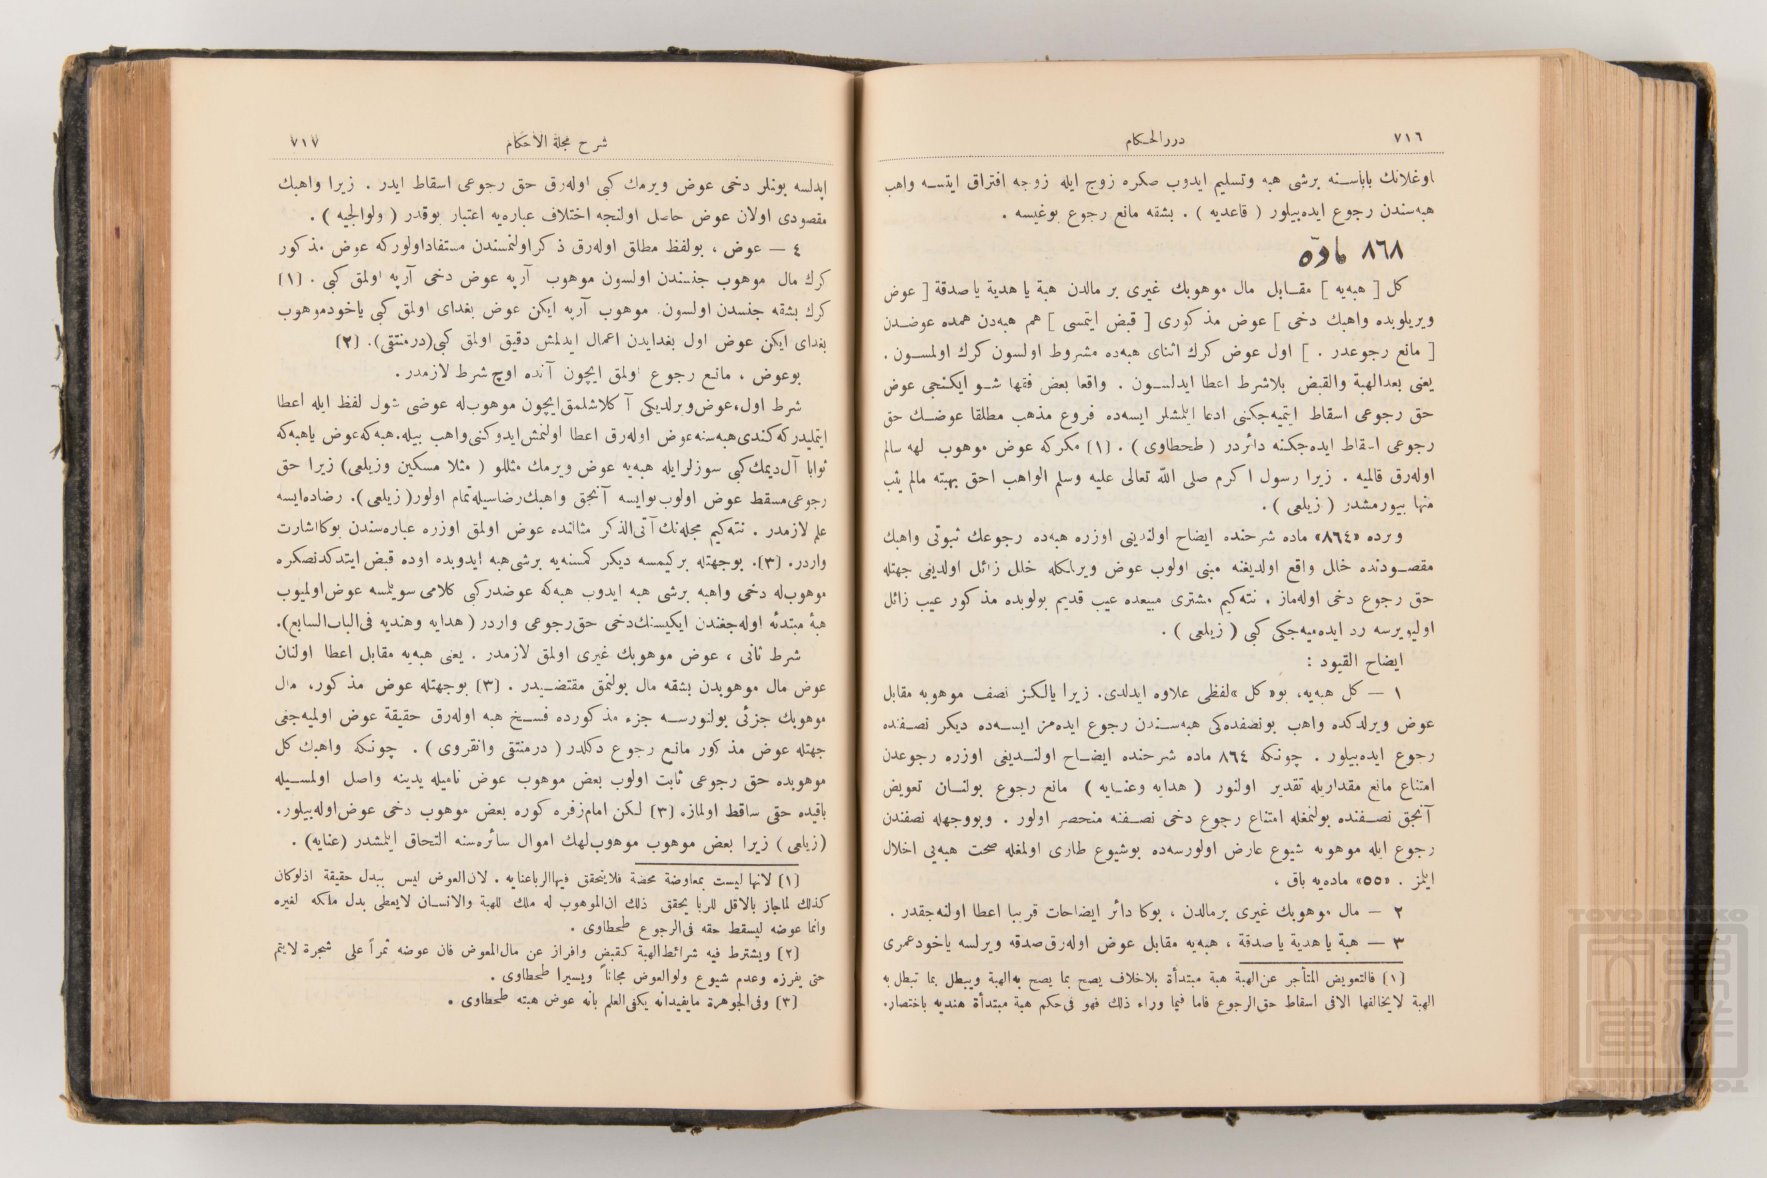 ٧١٦
دررالحكام
اوغلانك باباسنه برشى هبه وتسليم ايدوب صكره زوج ايله زوجه افتراق ايتسه واهب
هبه‌سندن رجوع ايده‌بيلور ( قاعديه ) . بشقه مانع رجوع يوغيسه .
٨٦٨ ماده
كل [ هبه‌يه ] مقابل مال موهوبك غيرى بر مالدن هبة يا هدية يا صدقة [ عوض
ويريلوبده واهبك دخى ] عوض مذكورى [ قبض ايتمسى ] هم هبه‌دن همده عوضدن
[ مانع رجوعدر . ] اول عوض كرك اثناى هبه‌ده مشروط اولسون كرك اولمسون .
يعنى بعدالهبة والقبض بلاشرط اعطا ايدلسون . واقعا بعض فقها شو ايكنجى عوض
حق رجوعى اسقاط ايتميه‌جكنى ادعا ايلمشلر ايسه‌ده فروع مذهب مطلقا عوضك حق
رجوعى اسقاط ايده‌جكنه دائردر ( طحطاوى ) . [١] مكركه عوض موهوب لهه سالم
اوله‌رق قالميه . زيرا رسول اكرم صلى الله تعالى عليه وسلم الواهب احق بهبته مالم يثب
منها بيورمشدر ( زيلعى ) .
وبرده «٨٦٤» ماده شرحنده ايضاح اولنديغى اوزره هبه‌ده رجوعك ثبوتى واهبك
مقصودنده خلل واقع اولديغنه مبنى اولوب عوض ويرلمكله خلل زائل اولديغى جهتله
حق رجوع دخى اوله‌ماز . نته‌كيم مشترى مبيعده عيب قديم بولوبده مذكور عيب زائل
اوليويرسه رد ايده‌ميه‌جكى كبى ( زيلعى ) .
ايضاح القيود :
١ — كل هبه‌يه، بو« كل »لفظى علاوه ايدلدى. زيرا يالكز نصف موهوبه مقابل
عوض ويرلدكده واهب بونصفده‌كى هبه‌سندن رجوع ايده‌مز ايسه‌ده ديكر نصفنده
رجوع ايده‌بيلور . چونكه ٨٦٤ ماده شرحنده ايضاح اولنديغى اوزره رجوعدن
امتناع مانع مقداريله تقدير اولنور ( هدايه وعنايه ) مانع رجوع بولنان تعويض
آنجق نصفنده بولنمغله امتناع رجوع دخى نصفنه منحصر اولور . وبووجهله نصفندن
رجوع ايله موهوبه شيوع عارض اولورسه‌ده بوشيوع طارى اولمغله صحت هبه‌يى اخلال
ايلمز . «٥٥» ماده‌يه باق .
٢ — مال موهوبك غيرى برمالدن ، بوكا دائر ايضاحات قريبا اعطا اولنه‌جقدر .
٣ — هبة يا هدية يا صدقة ، هبه‌يه مقابل عوض اوله‌رق صدقه ويرلسه ياخود عمرى
[١] فالتعويض المتأجر عن‌الهبة هبة مبتدأة بلاخلاف يصح بما يصح به‌الهبة ويبطل بما تبطل به
الهبة لايخالفها الافى اسقاط حق‌الرجوع فاما فيما وراء ذلك فهو فى‌حكم هبة مبتدأة هنديه باختصار.
شرح مجلة الاحكام
٧١٧
ايدلسه بونلر دخى عوض ويرمك كبى اوله‌رق حق رجوعى اسقاط ايدر . زيرا واهبك
مقصودى اولان عوض حاصل اولنجه اختلاف عباره‌يه اعتبار يوقدر ( ولوالجيه ) .
٤ — عوض ، بولفظ مطلق اوله‌رق ذكراولنمسندن مستفاداولوركه عوض مذكور
كرك مال موهوب جنسندن اولسون موهوب آرپه عوض دخى آرپه اولمق كبى . [١]
كرك بشقه جنسدن اولسون. موهوب آرپه ايكن عوض بغداى اولمق كبى ياخودموهوب
بغداى ايكن عوض اول بغدايدن اعمال ايدلمش دقيق اولمق كبى(درمنتقى). [٢]
بوعوض ، مانع رجوع اولمق ايچون آنده اوچ شرط لازمدر .
شرط اول،عوض‌ويرلديكى آكلاشلمق‌ايچون موهوب‌له عوضى شول لفظ ايله اعطا
ايتمليدركه‌كندى‌هبه‌سنه‌عوض اوله‌رق اعطا اولنمش‌ايدوكنى‌واهب بيله.هبه‌كه‌عوض ياهبه‌كه
ثوابا آل‌ديمك‌كبى سوزلرايله هبه‌يه عوض ويرمك مثللو ( مثلا مسكين وزيلعى) زيرا حق
رجوعى‌مسقط عوض اولوب‌بوايسه آنجق واهبك‌رضاسيله‌تمام اولور( زيلعى). رضاده‌ايسه
علم لازمدر . نته‌كيم مجله‌نك آتى‌الذكر مثالنده عوض اولمق اوزره عباره‌سندن بوكااشارت
واردر. [٣]. بوجهتله بركيمسه ديكر كمسنه‌يه برشى‌هبه ايدوبده اوده قبض ايتدكدنصكره
موهوب‌له دخى واهبه برشى هبه ايدوب هبه‌كه عوضدركبى كلامى سويلمسه عوض‌اولميوب
هبهٔ مبتدئه اوله‌جغندن ايكيسنك‌دخى حق‌رجوعى واردر ( هدايه وهنديه فى‌الباب‌السابع).
شرط ثانى ، عوض موهوبك غيرى اولمق لازمدر . يعنى هبه‌يه مقابل اعطا اولنان
عوض مال موهوبدن بشقه مال بولنمق مقتضيدر . [٣] بوجهتله عوض مذكور، مال
موهوبك جزئى بولنورسه جزء مذكورده فسخ هبه اوله‌رق حقيقة عوض اولميه‌جغى
جهتله عوض مذكور مانع رجوع دكلدر ( درمنتقى وانقروى ) . چونكه واهبك كل
موهوبده حق رجوعى ثابت اولوب بعض موهوب عوض ناميله يدينه واصل اولمسيله
باقيده حقى ساقط اولماز. [٣] لكن امام‌زفره كوره بعض موهوب دخى عوض‌اوله‌بيلور.
(زيلعى ) زيرا بعض موهوب موهوب‌لهك اموال سائره‌سنه التحاق ايلمشدر (عنايه) .
[١] لانها ليست بمعاوضة محضة فلايتحقق فيهاالرباعنايه . لان‌العوض ليس ببدل حقيقة اذلوكان
كذلك لماجاز بالاقل للربا يحقق ذلك ان‌الموهوب له ملك للهبة والانسان لايعطى بدل ملكه لغيره
وانما عوضه ليسقط حقه فى‌الرجوع طحطاوى .
[٢] ويشترط فيه شرائط‌الهبة كقبض وافراز عن مال‌المعوض فان عوضه ثمراً على شجرة لايتم
حتى يفرزه وعدم شيوع ولوالعوض مجاناً ويسيرا طحطاوى .
[٣] وفى‌الجوهرة مايفيدانه يكفى‌العلم بانه عوض هبته طحطاوى .
TOYO BUNKO